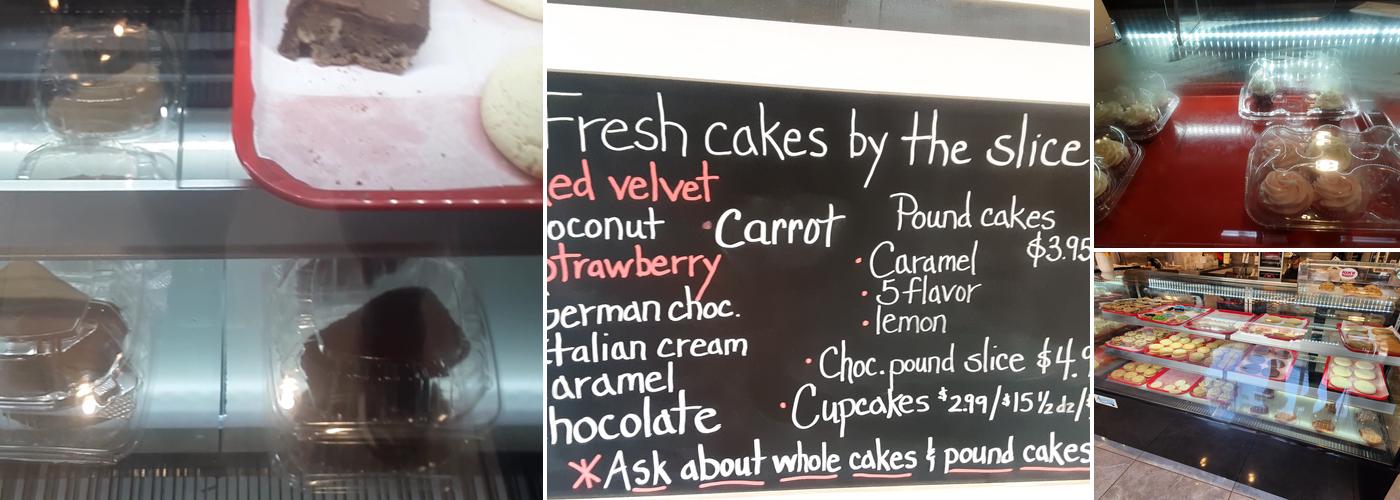 Fresh cakes by the slice
ed velvet
oconut
Carrot
trawberry
erman choc.
talian cream
aramel
hocolate
Pound cakes
$3.95
Caramel
5 flavor
lemon
Choc. pound slice $4.9
Cupcakes $2.99/$15 ½ dz/$
*Ask about whole cakes & pound cakes